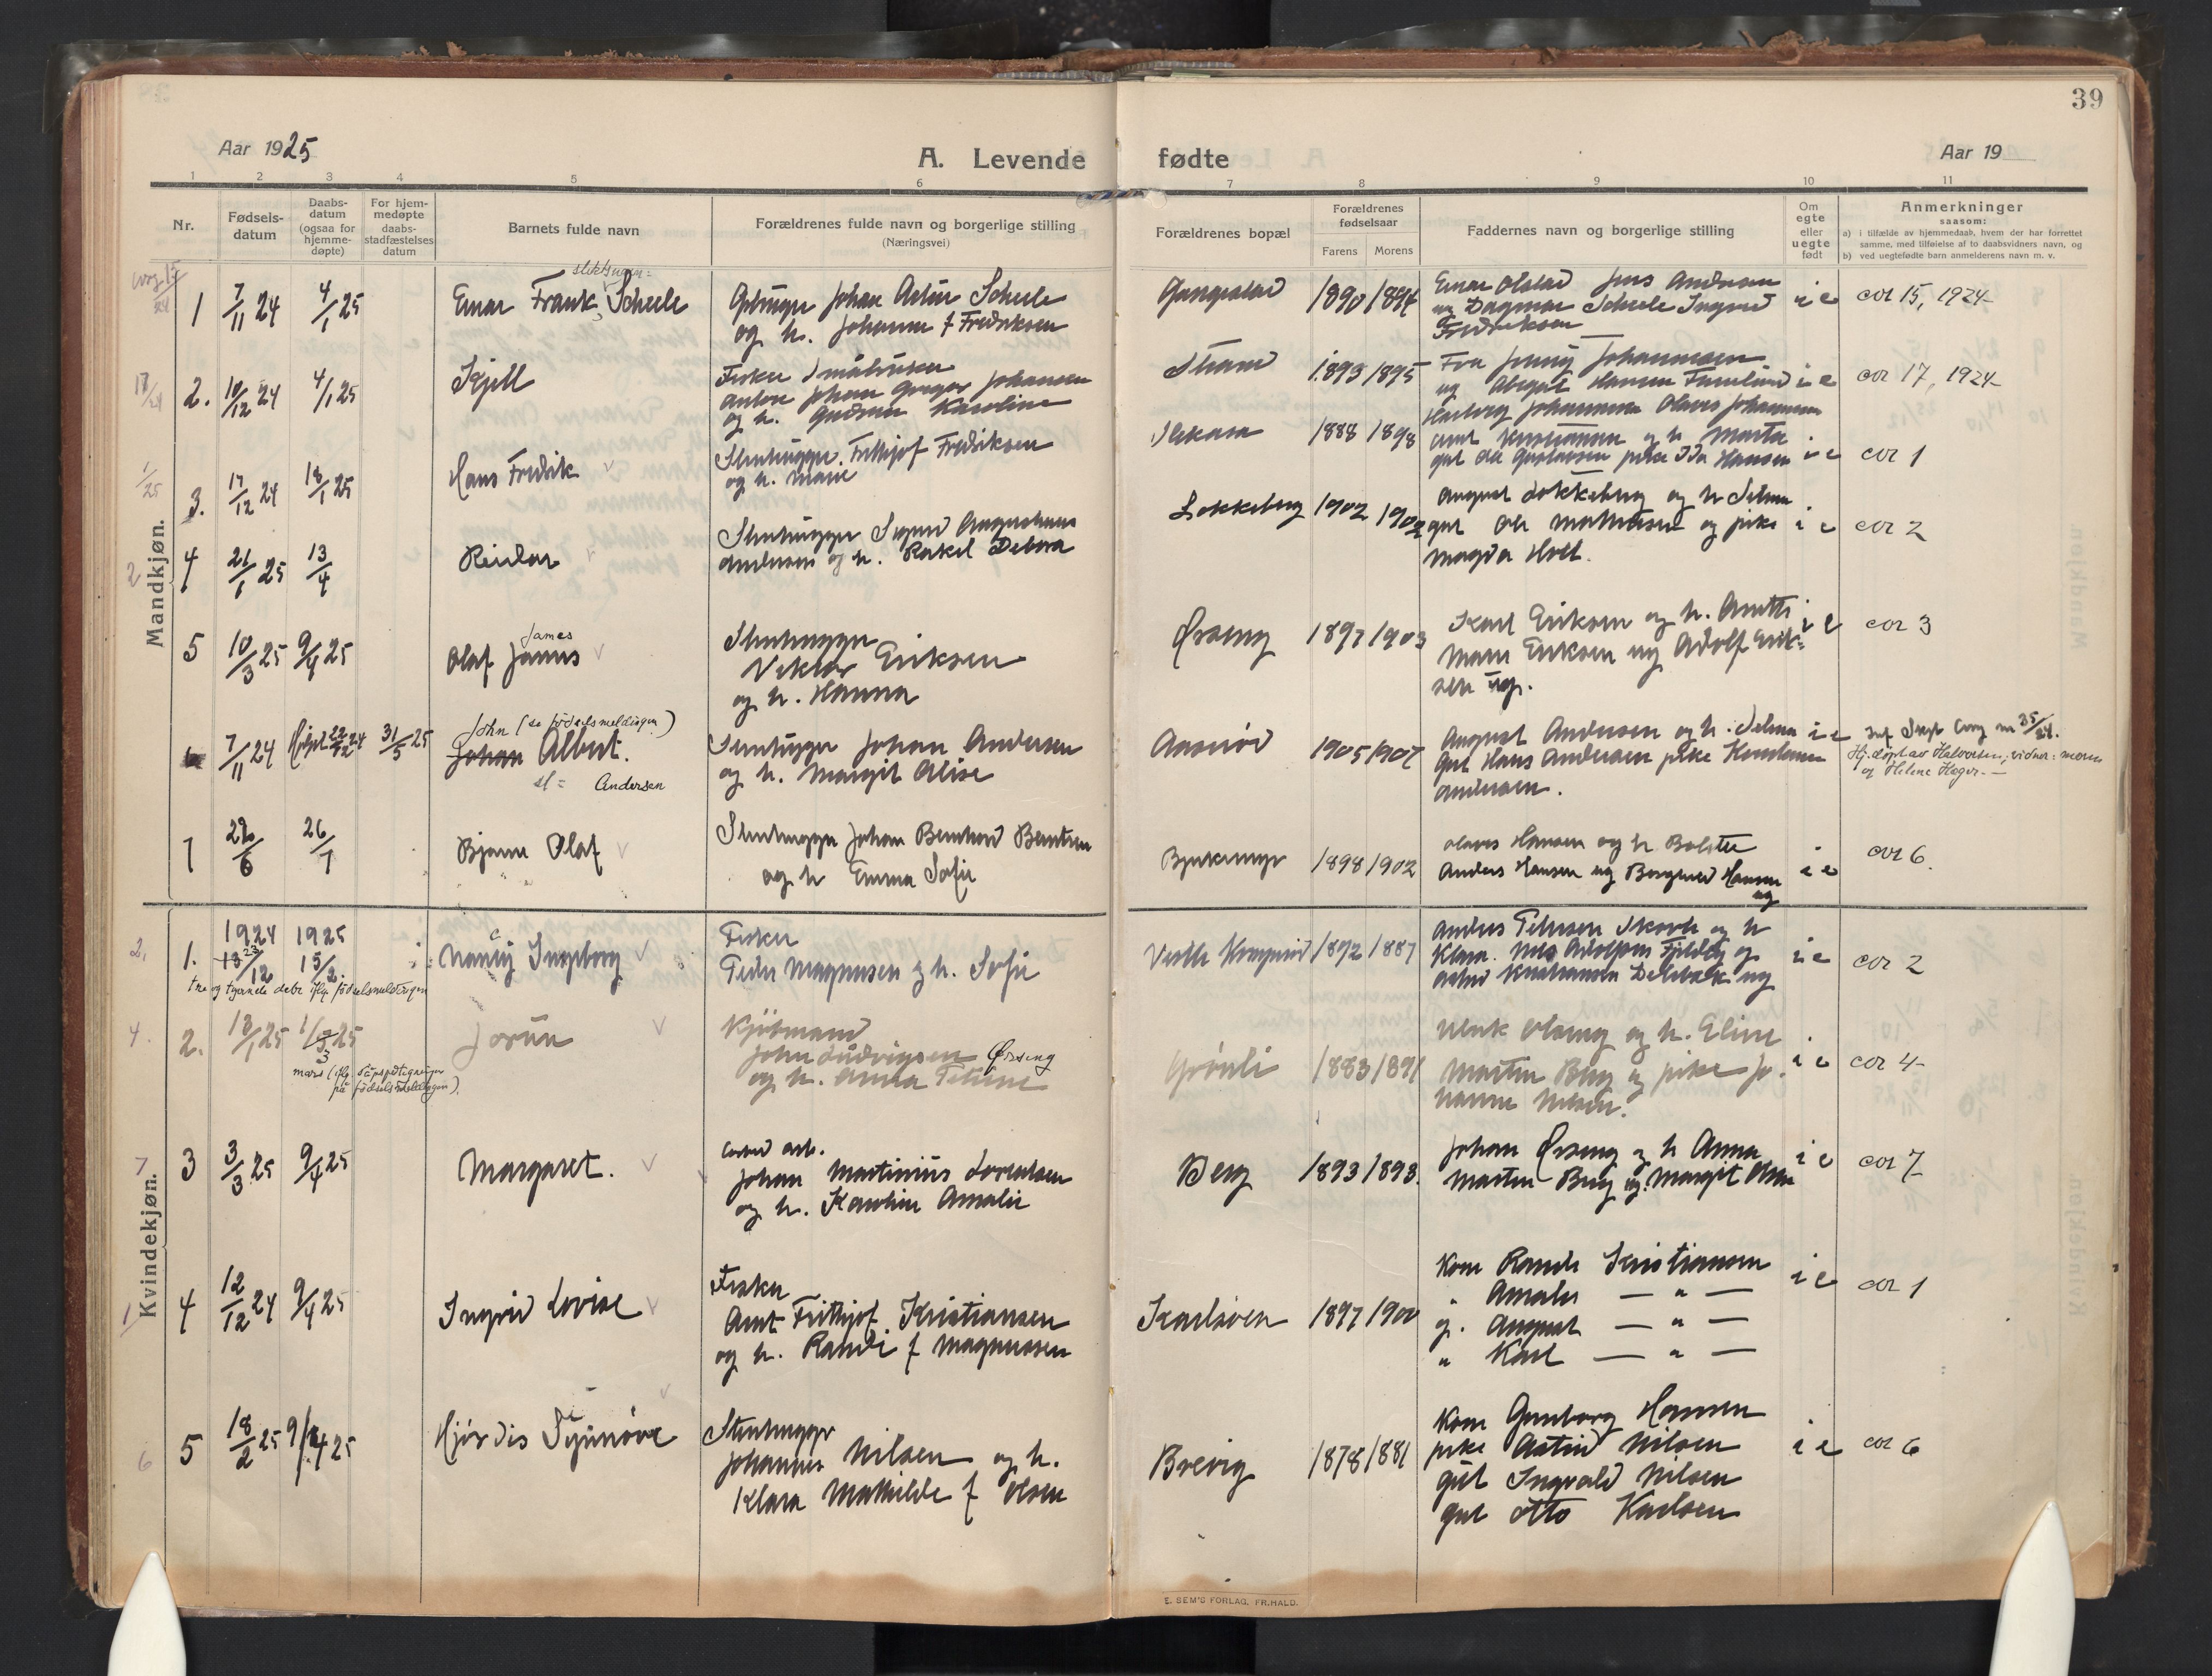 39
Aar 1925
A. Levende fødte
Aar 19
1 2 3 4 5 6 7 8 9 10 11
Nr.
Fødsels-
datum
Daabs-
datum
(ogsaa for
hjemme-
døpte)
For hjem-
medøpte
daabs-
stadfæstelses
datum
Barnets fulde navn
Forældrenes fulde navn og borgerlige stilling
(Næringsvei)
Forældrenes bopæl
Forældrenes
fødselsaar
Farens Morens
Faddernes navn og borgerlige stilling
Om
egte
eller
uegte
født
Anmerkninger
saasom:
a) i tilfælde av hjemmedaab, hvem der har forrettet
samme, med tilføielse af to daabsvidners navn, og
b) ved uegtefødte barn anmelderens navn m. v.
Mandkjøn.
1 7/11 24 4/1 25
Einar Frank Scheele
Johan Artur Scheele
og h. Johanne f Fredriksen
1890 1894
Einar Olstad Jens Andersen
Dagmar Scheele Ingrid
Fredriksen
i e cor 15, 1924
2. 10/12 24 4/1 25
Kjell
Fisker Småbruker
Anton Johan Gregor Johansen
og h. Gudrun Karoline
Strand 1893 1895
Fru Jenny Johannessen
og Abigael Hansen
i e cor 17, 1924
3. 17/12 24 18/1 25
Hans Fredrik
Stenhugger Frithjof Fredriksen
og h. Marie
1888 1898
Johannessen Olavus Johannessen
Arnt Kristiansen og h Marta
gut Ole Gustavsen pike Ida Hansen
i e cor 1
4 21/1 25 13/4
Reidar
Stenhugger Sigurd
Andersen og h. Rakel Debora
Lokkeberg 1902 1902
August Lokkeberg og h Selma
gut Ole Mathisen og pike
Magda Holt.
i e cor 2
5 10/3 25 9/4 25
James
Olaf Jonus
Stenhugger
Viktor Eriksen
og h. Hanna
Ørseng 1897 1903
Karl Eriksen og h. Anette
Marie Eriksen ug Adolf Erik-
sen ug.
i e cor 3
6 7/11 24 22/12 24 31/5 25
John (se fødselsmeldingen)
Johan Albert.
sl = Andersen
Stenhugger Johan Andersen
og h. Margit Alise
Aaserød 1905 1907
August Andersen og h. Selma
gut Hans Andersen pike
Andersen.
i e
Hj.døpt av Halvorsen, vidner: moren
og Helene Hager. —
7 26/7
Bjarne Olaf
Stenhugger Johan Bernhard Berntsen
og h Emma Sofie
1898 1902
Olavus Hansen og h Bolette
Anders Hansen ug Borghild Hansen
ug
i e cor 6.
Kvindekjøn.
1. 1924 1925
13 23/12 15/2
Nancy Ingeborg
Fisker
Peder Magnussen og h. Sofie
1892 1887
Anders Petersen og h
Klara. Nils Adolfsen
Kristiansen ug
i e cor 2
tre og tyvende debr iflg. fødselsmeldingen
2. 13/1 25 1/3 25
mars (iflg. dåpspåtegninger
på fødselsmeldingen).
Jorun
John Ludvigsen Ørseng
og h. Anna Petrine
Grønli 1883 1891
og h. Eline
Martin Berg og pike Jo-
hanne Nilsen.
i e cor 4
3 3/3 25 9/4 25
Margaret.
arb.
Johan Martinius Lorentsen
og h. Karoline Amalie
Berg 1893 1893.
Johan Ørseng og h Anna
Martin Berg ug. Margit Olsen
i e cor 7
4 12/12 24 9/4 25
Ingrid Lovise
Fisker
Arnt Frithjof Kristiansen
og h. Randi f Magnussen
1897 1900
Kone Randi Kristiansen
" Amalie — " —
g. August — " —
" Karl — " —
i e cor 1
5 18/2 25 9/4 25
Hjørdis Synnøve
Stenhugger
Johannes Nilsen og h.
Klara Mathilde f Olsen
Brevig 1878 1881
Kone Gunborg Hansen
pike Astrid Nilsen
gut Ingvald Nilsen
gut Otto Karlsen
i e cor 6
E. SEM'S FORLAG, FR.HALD.